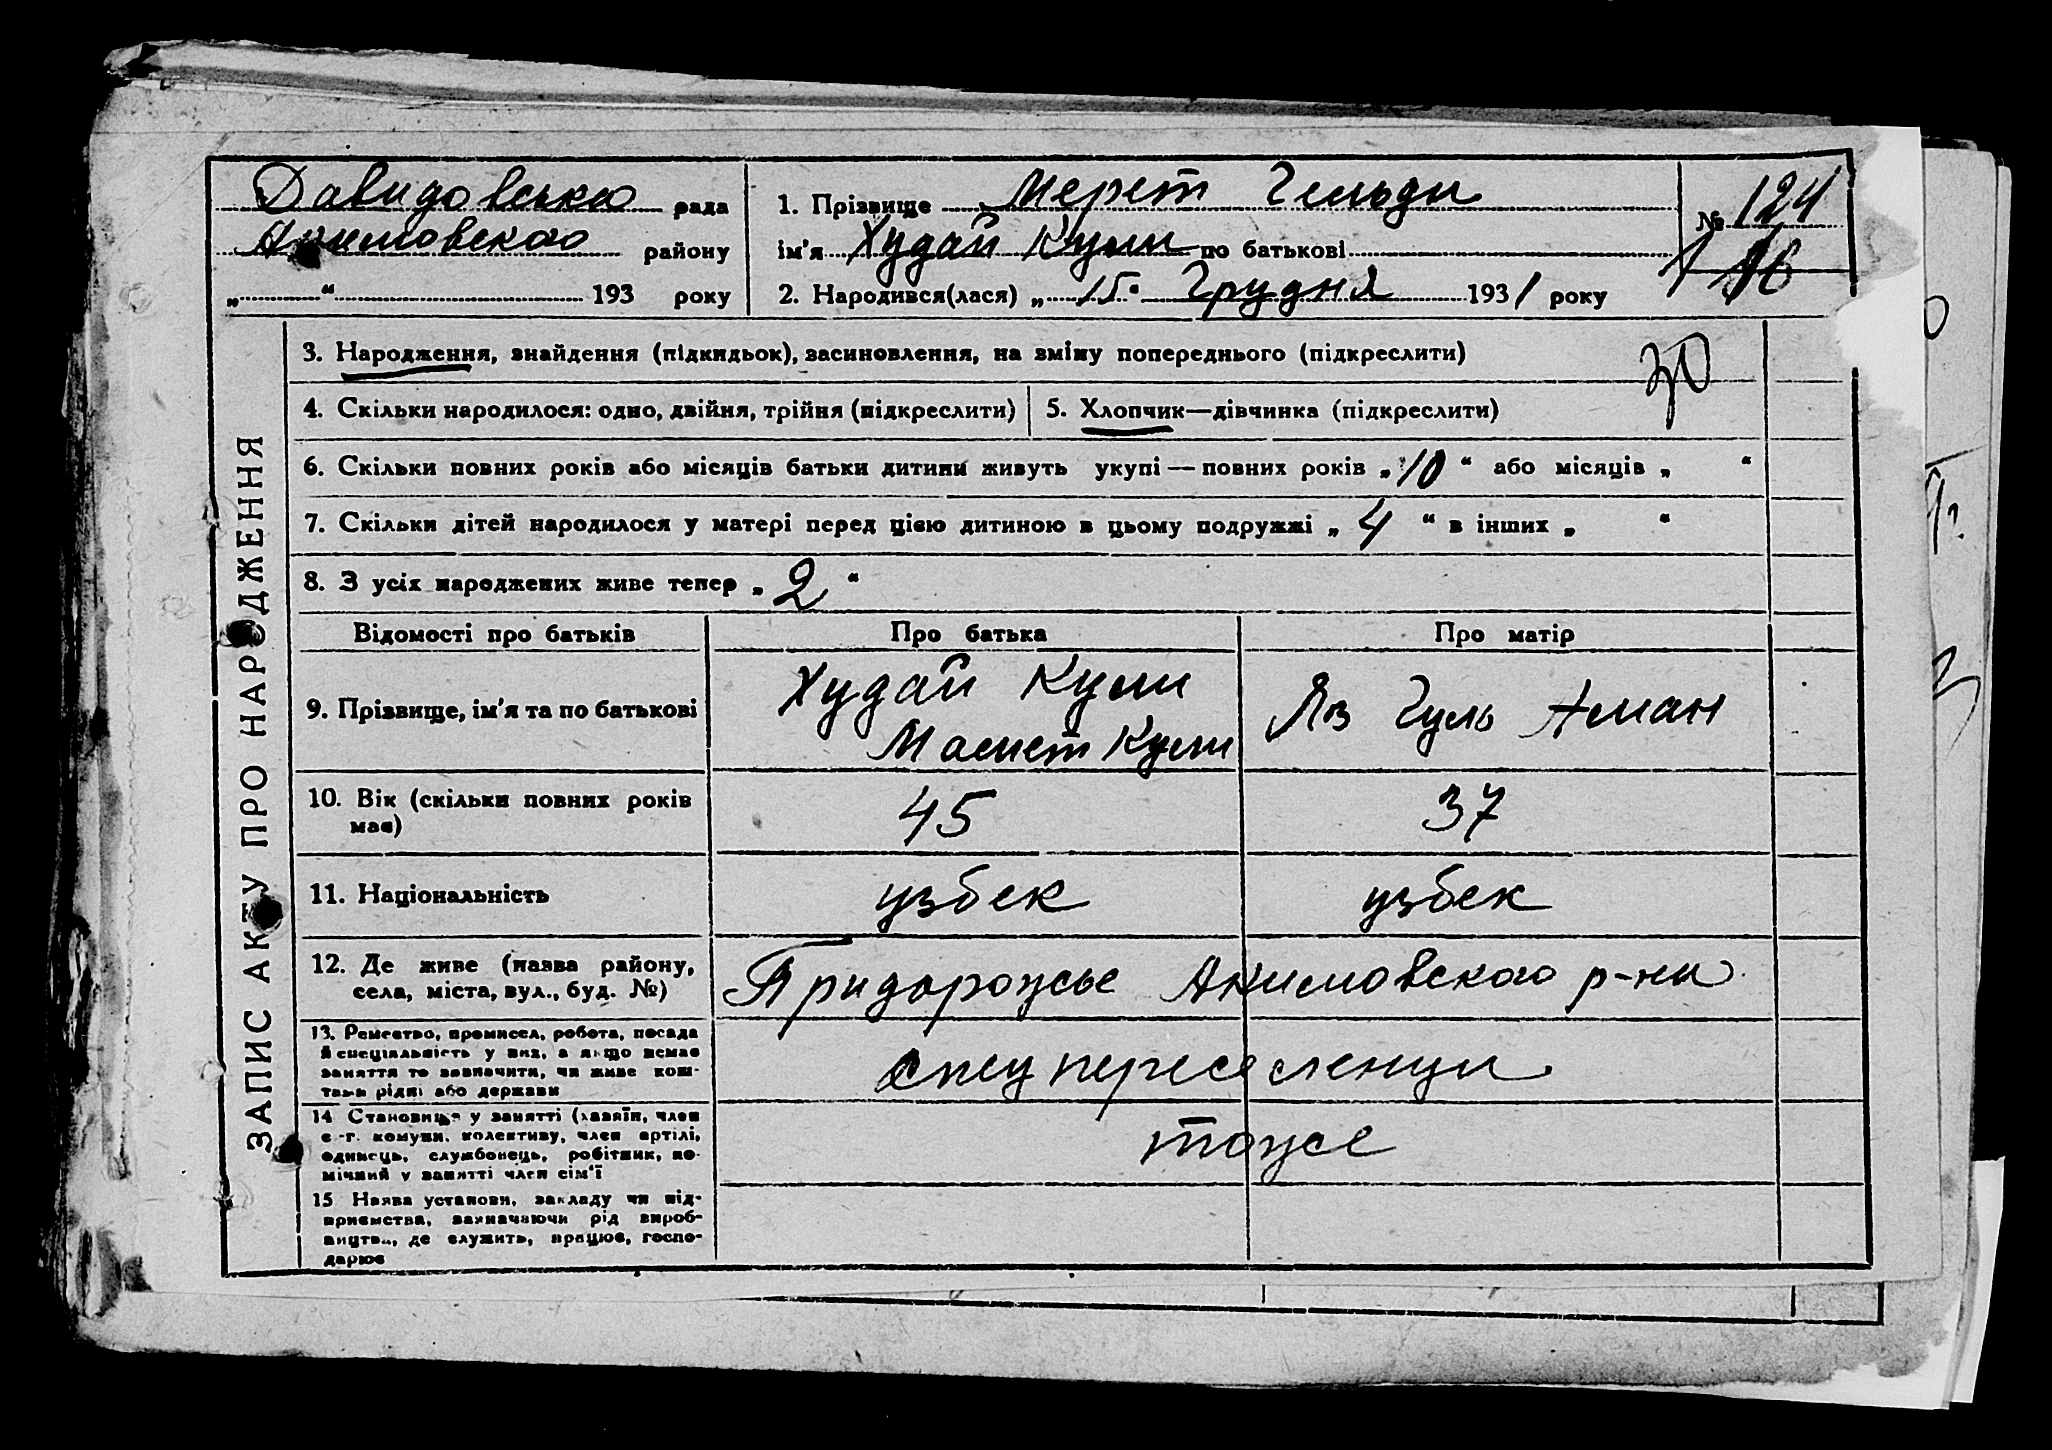 Давидовська рада
Акимовского району
„ “ 193 року
1. Прізвище Мерет Гельди
ім'я Худай Кули по батькові
2. Народився(лася) „ 15 “ Грудня 1931 року
№ 124
16
30
ЗАПИС АКТУ ПРО НАРОДЖЕННЯ
3. Народження, знайдення (підкидьок), засиновлення, на зміну попереднього (підкреслити)
4. Скільки народилося: одно, двійня, трійня (підкреслити)
5. Хлопчик—дівчинка (підкреслити)
6. Скільки повних років або місяців батьки дитини живуть укупі — повних років „ 10 “ або місяців „ “
7. Скільки дітей народилося у матері перед цією дитиною в цьому подружжі „ 4 “ в інших „ “
8. З усіх народжених живе тепер „ 2 “
Відомості про батьків
Про батька
Про матір
9. Прізвище, ім'я та по батькові
Худай Кули
Мамет Кули
Яз Гуль Аман
10. Вік (скільки повних років
має)
45
37
11. Національність
узбек
узбек
12. Де живе (назва району,
села, міста, вул., буд. №)
Придорожье Акимовского р-на
13. Ремество, промисел, робота, посада
й спеціяльність у них, а якщо немає
заняття то зазначити, чи живе кош-
тами рідні або держави
спец переселенци
14 Становище у занятті (хазяїн, член
с.-г. комуни, колективу, член артілі,
одинець, службовець, робітник, по-
мічний у занятті член сім'ї
тоже
15 Назва установи, закладу чи під-
приємства, зазначаючи рід вироб-
ництва, де служить, працює, госпо-
дарює